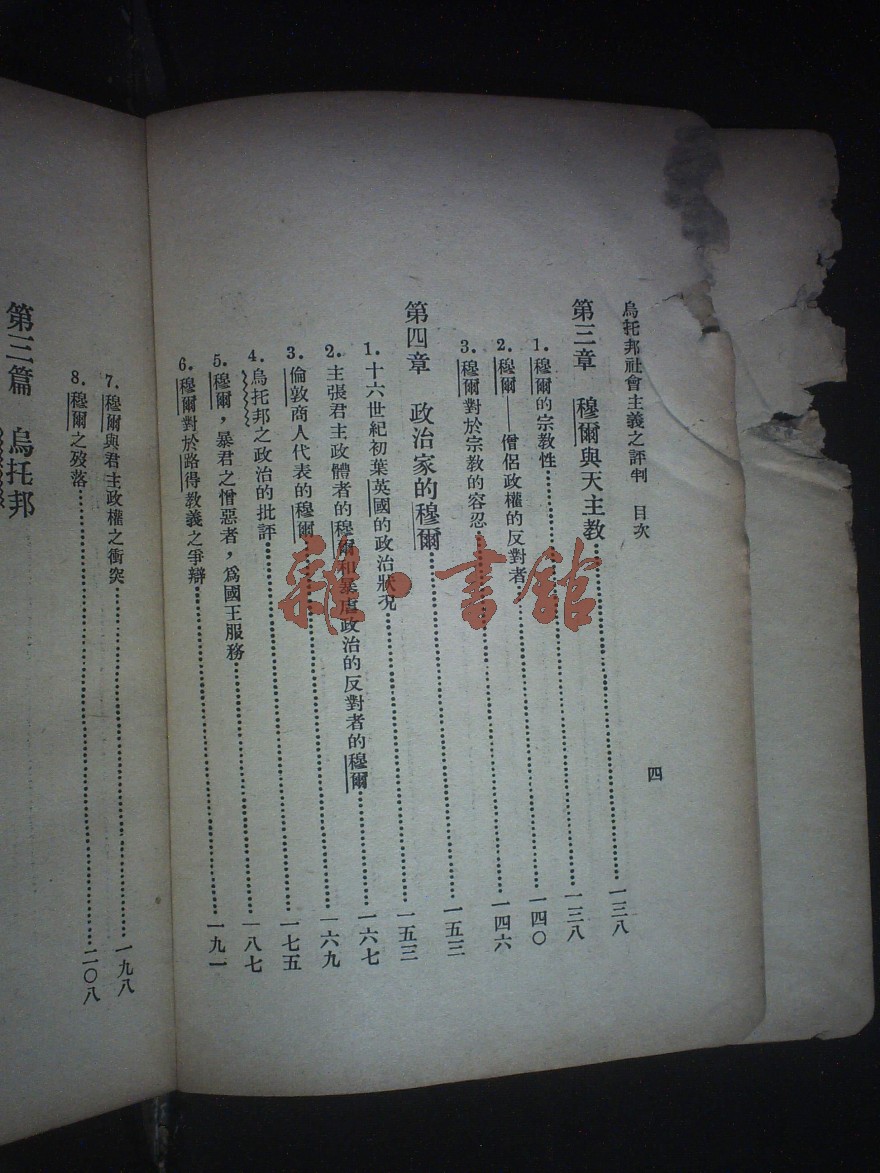 烏托邦社會主義之評判 目次 四
第三章 穆爾與天主教……一三八
1. 穆爾的宗教性……一三八
2. 穆爾——僧侶政權的反對者……一四〇
3. 穆爾對於宗教的容忍……一四六
第四章 政治家的穆爾……一五三
1. 十六世紀初葉英國的政治狀况……一五三
2. 主張君主政體者的穆爾和暴虐政治的反對者的穆爾……一六七
3. 倫敦商人代表的穆爾……一六九
4. 烏托邦之政治的批評……一七五
5. 穆爾，暴君之憎惡者，爲國王服務……一八七
6. 穆爾對於路得教義之爭辯……一九一
7. 穆爾與君主政權之衝突……一九八
8. 穆爾之歿落……二〇八
第三篇 烏托邦
雜·書館